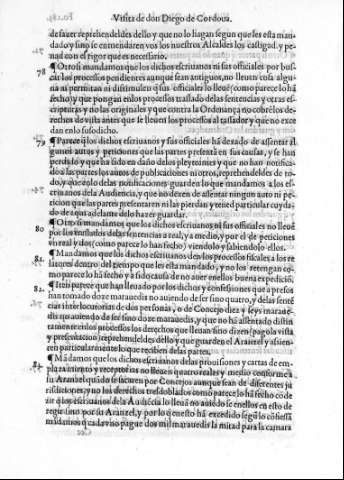 Visita de don Diego de Cordoua.
de facer reprehendeldes dello y que no lo hagan segun que les esta man
dado y sino se enmendaren vos los nuestros Alcaldes los castigad y pe
nad con el rigor que es necessario.
78 ¶ Otrosi mandamos que los dichos escriuanos ni sus officiales por bus
car los processos pendientes aunque sean antiguos, no lleuen cosa algu
na ni permitan ni dissimulen q̃ sus officiales lo lleuẽ (como parece lo hã
fecho) y que pongan en los processos traslado de las sentencias y otras es-
cripturas y no las originales y que contra la Ordenança no cobrẽ los de-
reches de vista antes que se lleuen los processos al tassador y que no exce
dan en lo susodicho.
79 ¶ Parece q̃ los dichos escriuanos y sus officiales hã dexado de assentar al
gunos autos y peticiones que las partes presentã en sus causas, y se han
perdido y que ha sido en daño de los pleyteantes y que no han notifica-
do a las partes los autos de publicaciones ni otros, reprehendeldes de to-
do, y que en lo de las notificaciones guarden lo que mandamos a los es-
criuanos de la Audiencia, y que no dexen de assentar ningun auto ni pe-
ticion que las partes presentaren ni las pierdan y tened particular cuyda-
do de aqui adelante de lo hazer guardar.
80 ¶ Otrosi mandamos que los dichos escriuanos ni sus officiales no lleuẽ
por los traslados de las sentencias a real, y a medio, y por el de peticiones
vn real y dos (como parece lo han fecho) viendolo y sabiendolo ellos.
81 ¶ Mandamos que los dichos escriuanos den los processos fiscales a los re
latores dentro del tiempo que les esta mandado, y no los retengan co-
mo parece lo hã fecho y a su causa de no auer en ellos buena expedicion.
82 ¶ Iten parece que han lleuado por los dichos y confessiones que a presos
han tomado doze marauedis no auiendo de ser sino quatro, y de las senten
cias interlocutorias de dos personas, o de Concejo diez y seys maraue-
dis no auiendo de ser sino doze marauedis, y que no hã assentado distin
tamente en los processos los derechos que lleuan sino dizen (pago la vista
y presentacion) reprehendeldes dello y que guarden el Aranzel y assien-
ten particularmente lo que reciben de las partes.
¶ Mãdamos que los dichos escriuanos de las prouisiones y cartas de em-
plazamiento y receptorias no lleuen quatro reales y medio conforme a
su Aranzel quãdo se dieren por Concejos aunque sean de diferentes ju
risdictiones, y no los derechos tresdoblados como parece lo hã fecho cõ de
zir q̃ los escriuanos de la Audiẽcia lo lleuã no auiẽdo se en ellos en esto de
regir sino por su Aranzel, y por lo q̃ en esto hã excedido segũ lo cõfiessã
mãdamos q̃ cada vno pague dos mil marauedis la mitad para la camara